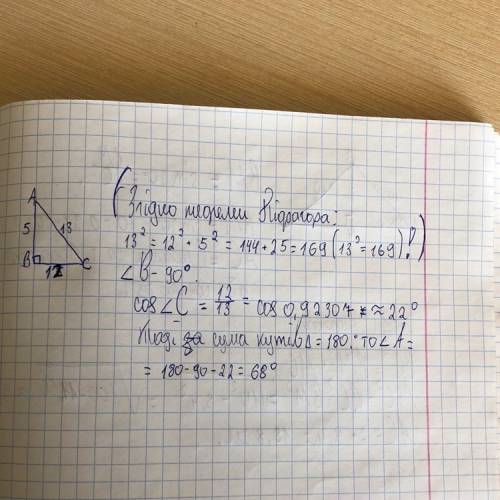 A
5
13
B
12
C
(Згідно теореми Піфагора:
13² = 12² + 5² = 144 + 25 = 169 (13² = 169)!)
∠B - 90°.
cos∠C = 12/13 = cos 0,92307 ≈ 22°
Тоді за сума кутів Δ = 180°, то ∠A =
= 180 - 90 - 22 = 68°